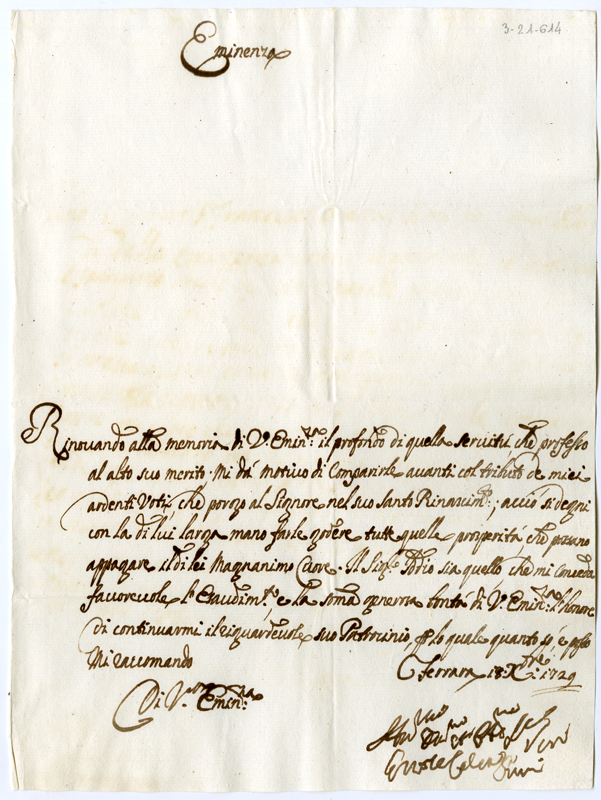 3-21-614
Eminenza
Rinovando alla memoria di V.ra Emin.za il profondo di quella servitù che professo
al alto suo merito Mi dà motivo di Comparirle avanti col tributo de miei
ardenti Voti, che porgo al Signore nel suo santo Rinascim.to; acciò si degni
con la di lui larga mano farle godere tutte quelle prosperità che possano
appagare il di lei Magnanimo Cuore. Il Sig.re Iddio sia quello che mi Conceda
favorevole l'Exaudim.to e la somma generosa bontà di V.ra Emin.za l'honore
di continuarmi il riguardevole suo Patrocinio, per lo quale quanto so, e posso
Mi raccomando
Ferrara 18 Xbre 1729
Di V.ra Emin.za